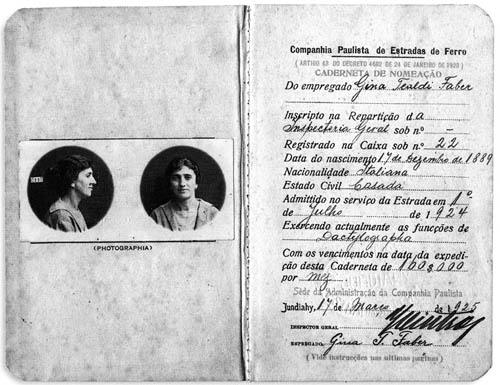 (PHOTOGRAPHIA)
Companhia Paulista de Estradas de Ferro
(ARTIGO 43 DO DECRETO 4682 DE 24 DE JANEIRO DE 1923)
CADERNETA DE NOMEAÇÃO
Do empregado Gina Tealdi Faber
Inscripto na Repartição da
Inspectoria Geral sob n.º -
Registrado na Caixa sob n.º 22
Data do nascimento 17 de Dezembro de 1889
Nacionalidade Italiana
Estado Civil Casada
Admittido no serviço da Estrada em 1º
de Julho de 1924
Exercendo actualmente as funcções de
Dactylographa
Com os vencimentos na data da expedi-
ção desta Caderneta de 100$000
por mez
Séde da Administração da Companhia Paulista
Jundiahy, 17 de Março de 925
INSPECTOR GERAL
EMPREGADO, Gina T. Faber
(Vide instrucções nas ultimas paginas)